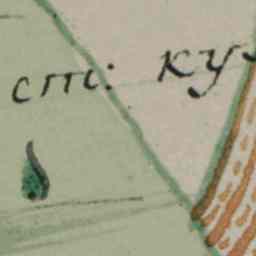 ст: ку